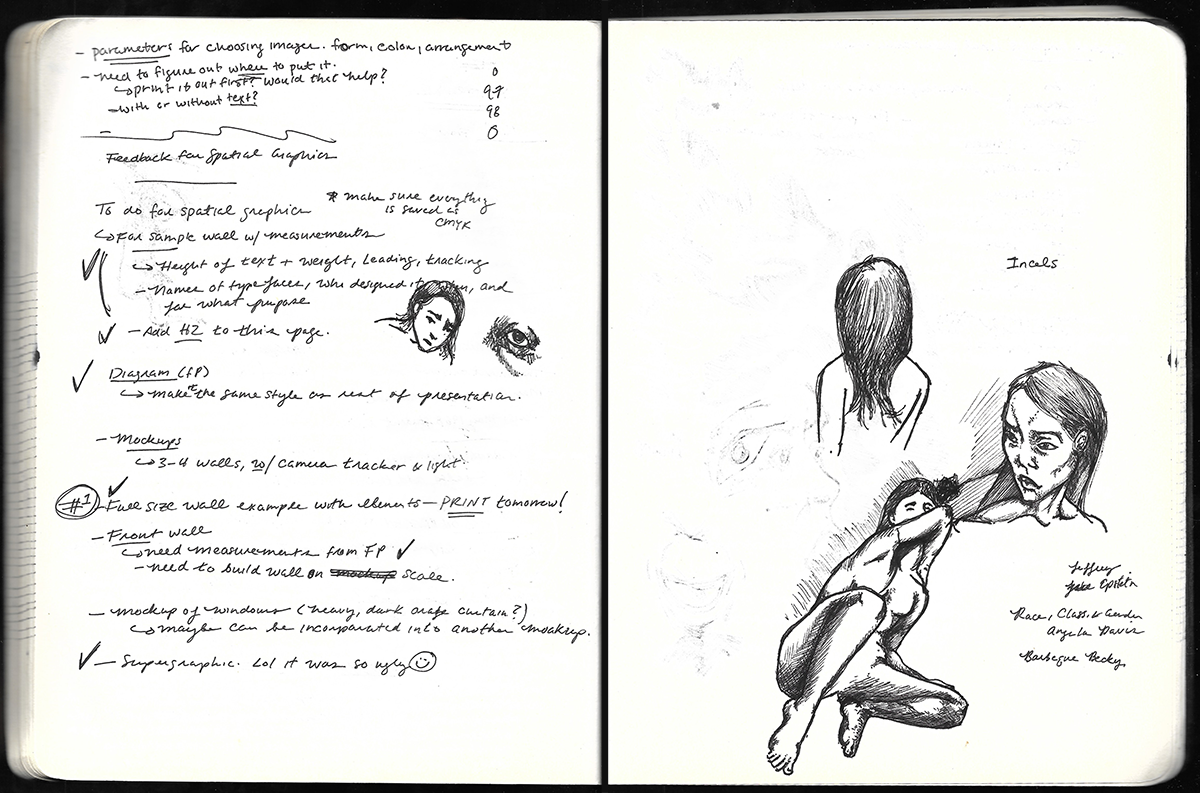 - parameters for choosing images. form, color, arrangement
- need to figure out where to put it.
↳ print it out first? Would that help?
- with or without text?
0
99
98
0
Feedback for Spatial Graphics
To do for spatial graphics
* make sure everything
is saved as
CMYK
↳ For sample wall w/ measurements
↳ Height of text + weight, leading, tracking
- Names of typefaces, who designed it, and
for what purpose
- Add H2 to this page.
Diagram (FP)
↳ make it the same style as rest of presentation.
- Mockups
↳ 3-4 walls, w/ camera tracker & light.
#1 - Full size wall example with elements - PRINT tomorrow!
- Front wall
↳ need measurements from FP ✓
- need to build wall on mockup scale.
- mockup of windows (heavy, dark drape curtain?)
↳ maybe can be incorporated into another mockup.
- Supergraphic. Lol it was so ugly ☺
Incels
Jeffrey
Epstein
Race, Class, & Gender
Angela Davis
Barbeque Becky